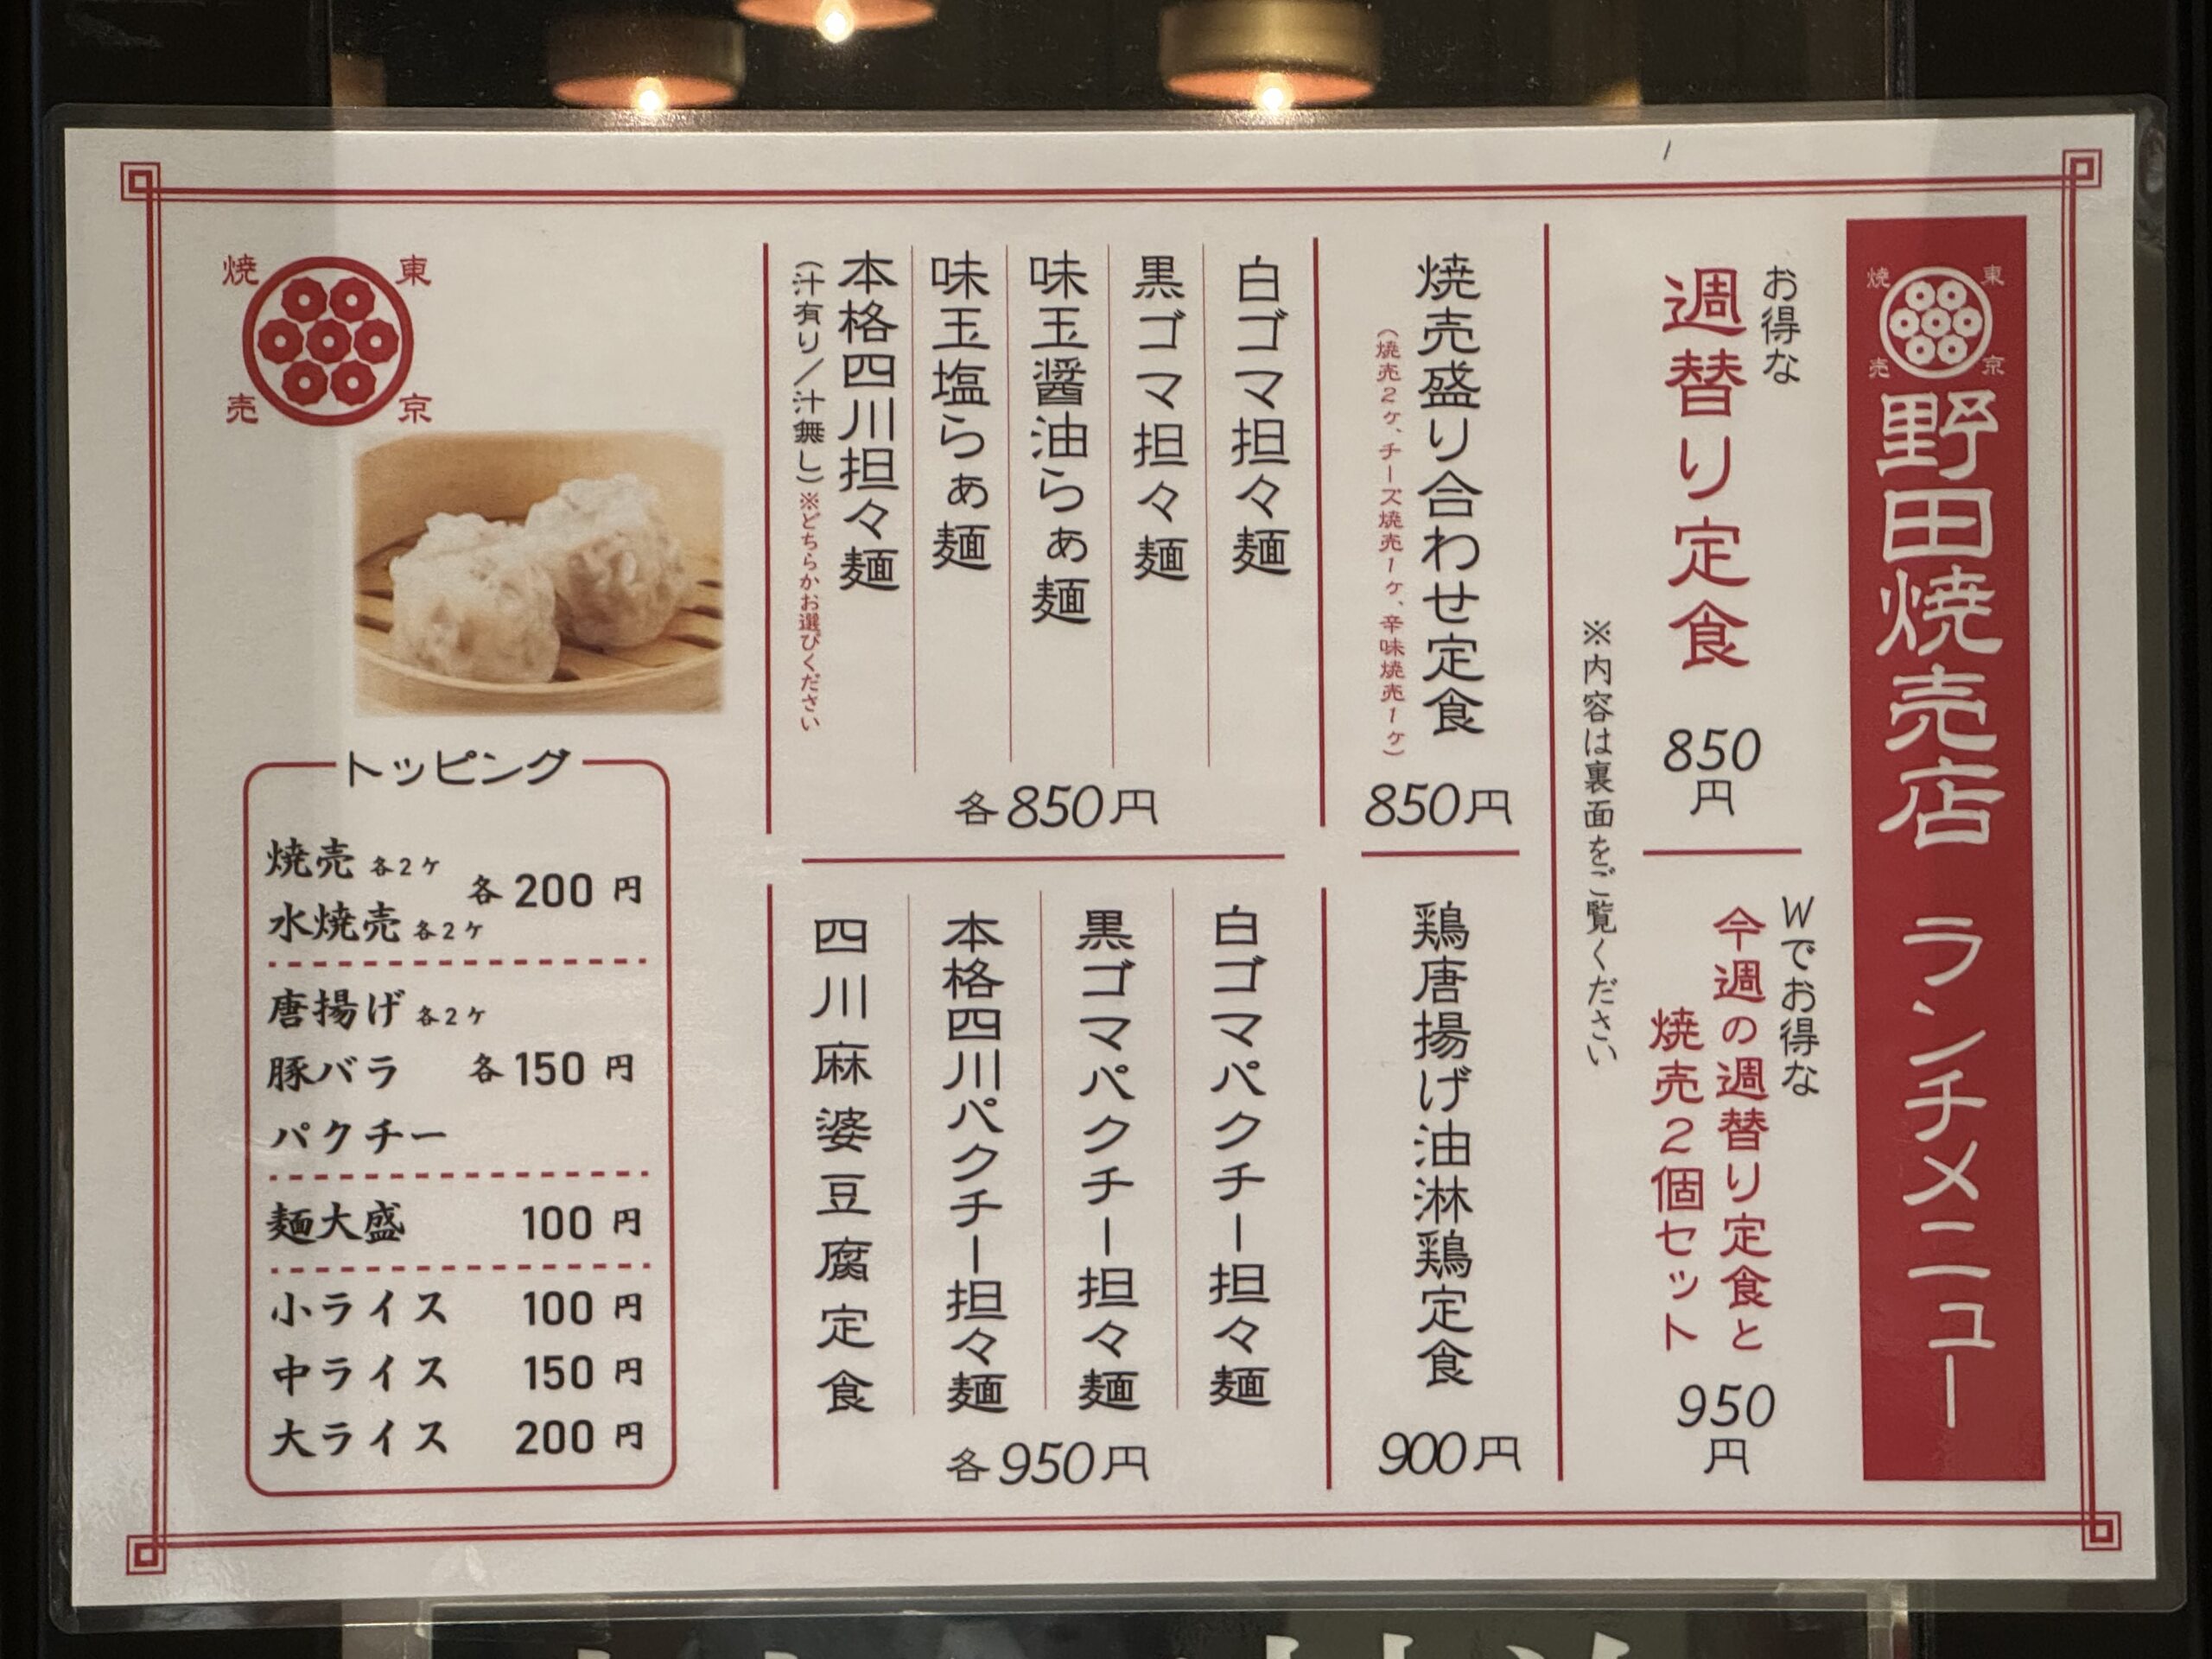 東京焼売
野田焼売店 ランチメニュー
お得な
週替り定食
850円
Wでお得な
今週の週替り定食と
焼売2個セット
950円
※内容は裏面をご覧ください
焼売盛り合わせ定食
(焼売2ヶ、チーズ焼売1ヶ、辛味焼売1ヶ)
850円
鶏唐揚げ油淋鶏定食
900円
白ゴマ担々麺
黒ゴマ担々麺
味玉醤油らぁ麺
味玉塩らぁ麺
本格四川担々麺
(汁有り/汁無し)※どちらかお選びください
各850円
白ゴマパクチー担々麺
黒ゴマパクチー担々麺
本格四川パクチー担々麺
四川麻婆豆腐定食
各950円
東京焼売
トッピング
焼売 各2ヶ
水焼売 各2ヶ
各200円
唐揚げ 各2ヶ
豚バラ
パクチー
各150円
麺大盛 100円
小ライス 100円
中ライス 150円
大ライス 200円